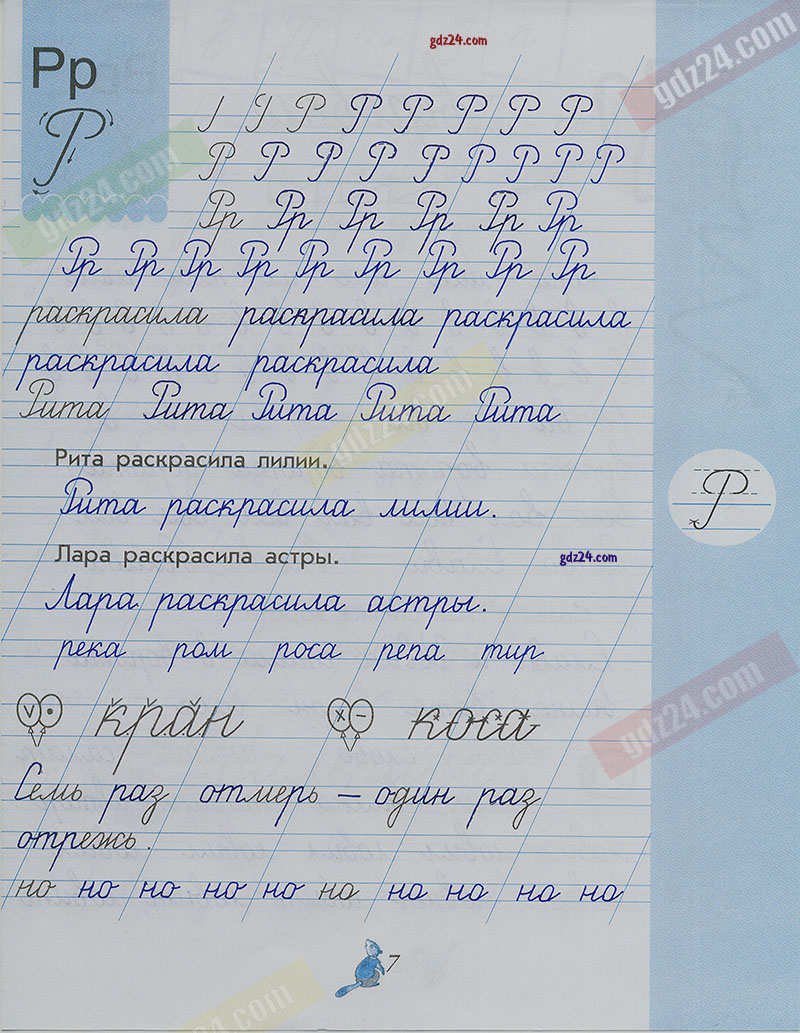 gdz24.com
gdz24.com
Рр
Р
Р Р Р Р Р Р
Р Р Р Р Р Р Р Р Р
gdz24.com
Рр Рр Рр Рр Рр Рр
Рр Рр Рр Рр Рр Рр Рр Рр Рр
раскрасила раскрасила раскрасила
раскрасила раскрасила
Рита Рита Рита Рита Рита
gdz24.com
Рита раскрасила лилии.
Рита раскрасила лилии.
Р
Лара раскрасила астры.
gdz24.com
Лара раскрасила астры.
река ром роса репа тир
gdz24.com
кран коса
Семь раз отмерь — один раз
отрежь.
но но но но но но но но но но
7
gdz24.com